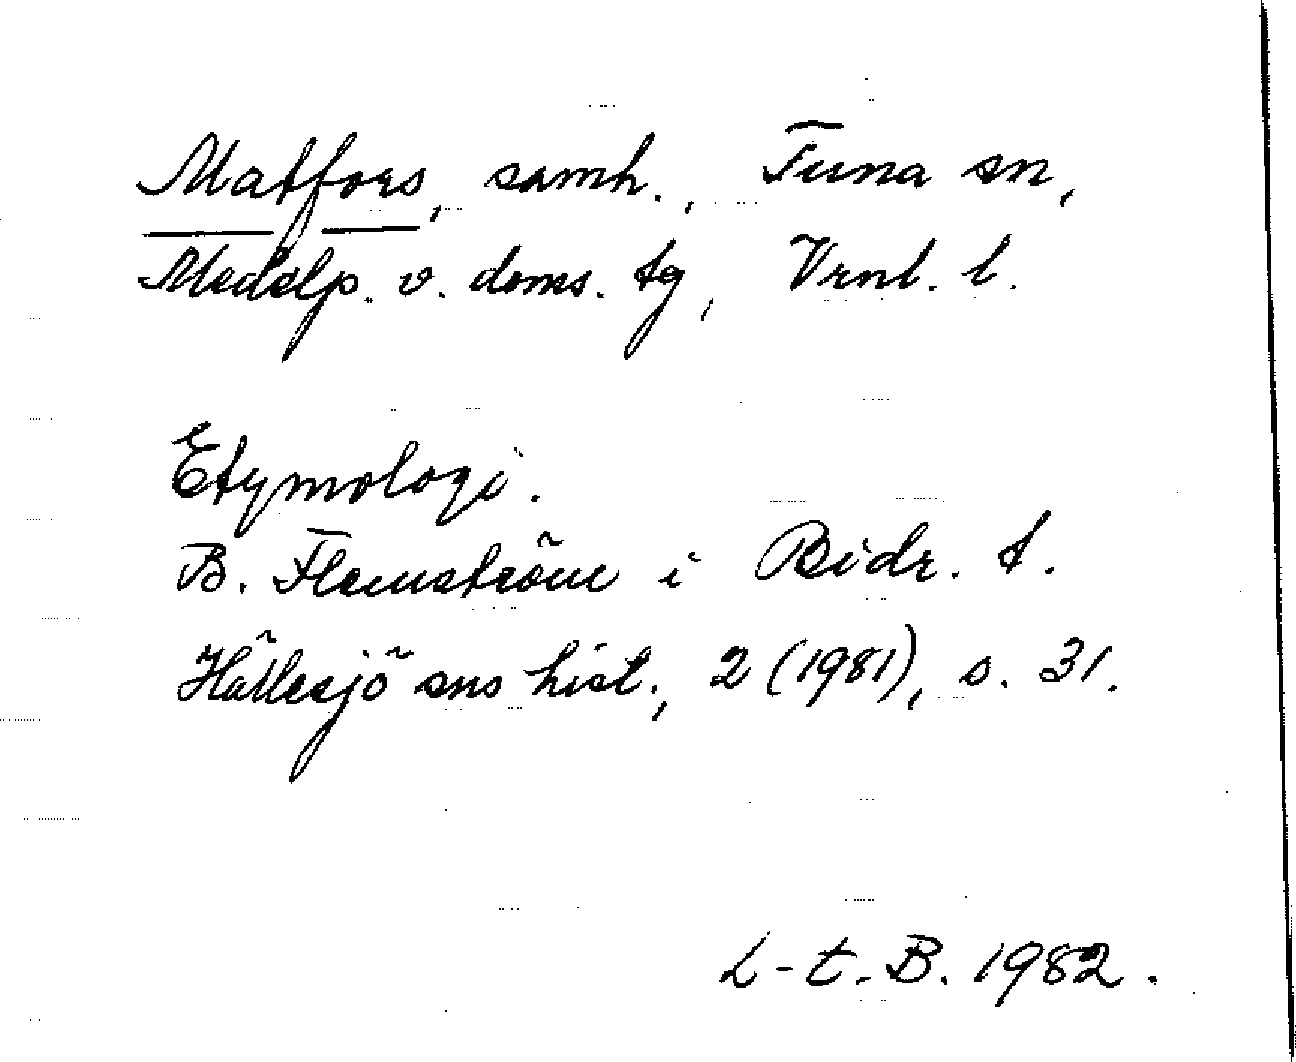 Matfors, samh., Tuna sn,
Medelp. v. doms. tg, Vrnl. l.
Etymologi.
B. Flemström i Bidr. t.
Hällesjö sns hist., 2 (1981), s. 31.
L-t. B. 1982.